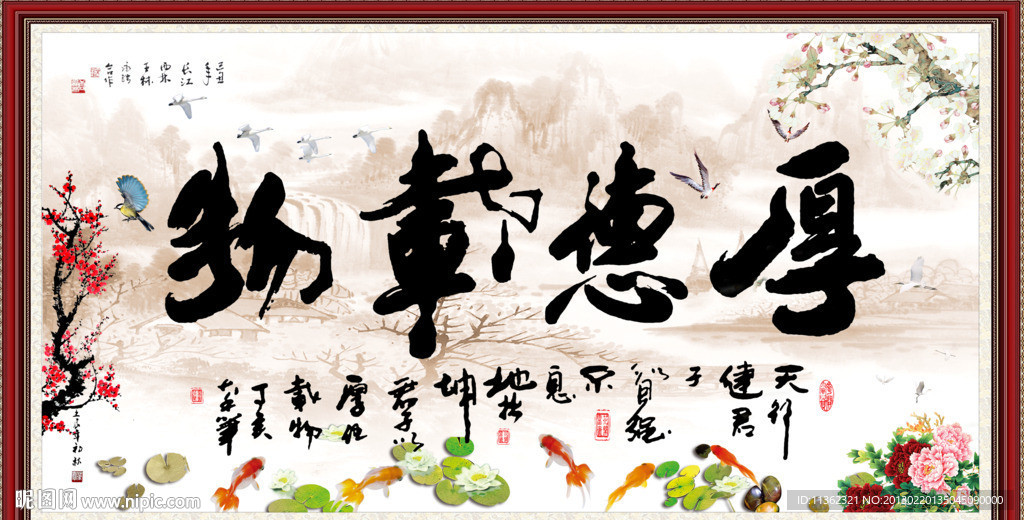 厚德載物
天行
健君
子
以自强
不
息
地势
坤
君子以
厚德
載物
丁亥
昵图网 www.nipic.com
ID:11362321 NO:20130220135045090000